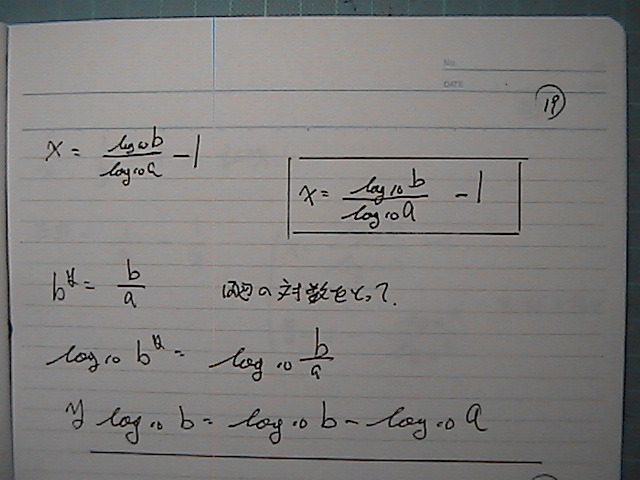 No.
DATE
⑲
x = log₁₀b / log₁₀a − 1
x = log₁₀b / log₁₀a − 1
b^y = b / a 両辺の対数をとって.
log₁₀ b^y = log₁₀ b / a
y log₁₀ b = log₁₀ b − log₁₀ a